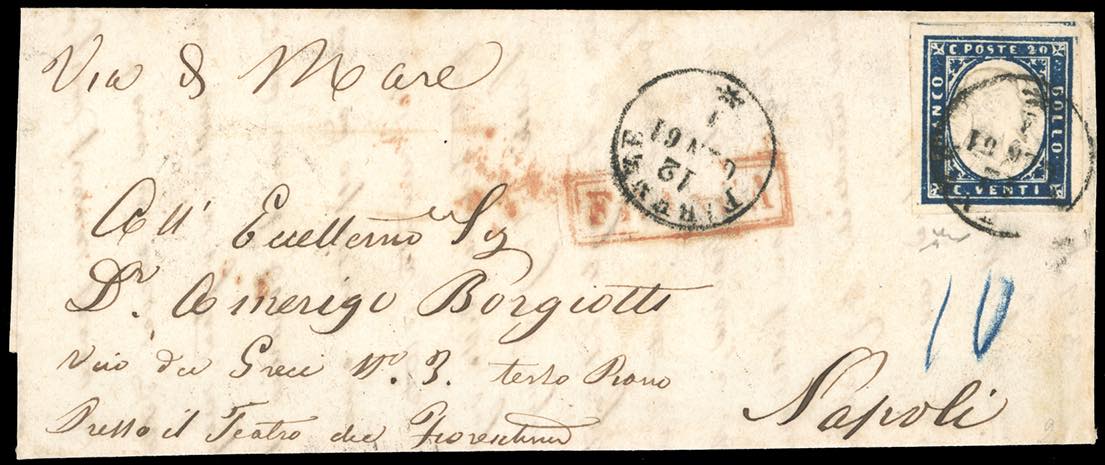 Via di Mare
C POSTE 20
FRANCO
BOLLO
C. VENTI
FIRENZE
12
61
All' Eccellemo Sig
Dr. Amerigo Borgiotti
10
Vico dei Greci No. 3. terzo Piano
Presso il Teatro dei Fiorentini
Napoli